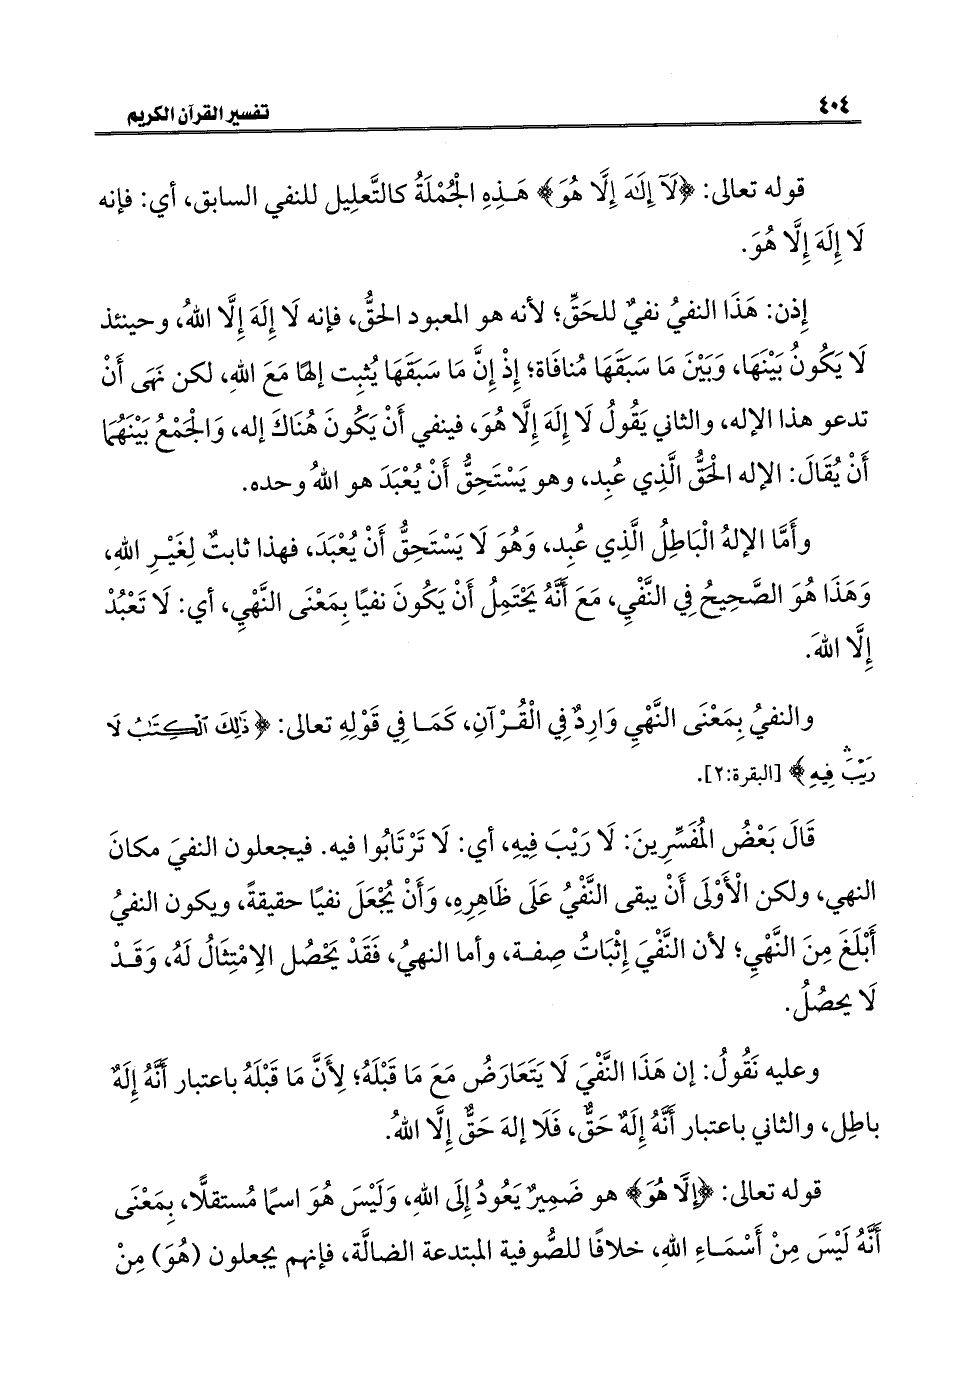 ٤٠٤
تفسير القرآن الكريم
قوله تعالى: ﴿لَآ إِلَٰهَ إِلَّا هُوَ﴾ هَذِهِ الْجُمْلَةُ كالتَّعليل للنفي السابق، أي: فإنه
لَا إِلَهَ إِلَّا هُوَ.
إذن: هَذَا النفيُ نفيٌ للحَقِّ؛ لأنه هو المعبود الحقُّ، فإنه لَا إِلَهَ إِلَّا اللهُ، وحينئذ
لَا يَكُونُ بَيْنَهَا، وَبَيْنَ مَا سَبَقَهَا مُنافَاة؛ إِذْ إِنَّ مَا سَبَقَهَا يُثبِت إلهًا مَعَ اللهِ، لكن نهَى أَنْ
تدعو هذا الإله، والثاني يَقُولُ لَا إِلَهَ إِلَّا هُوَ، فينفي أَنْ يَكُونَ هُنَاكَ إله، وَالْجَمْعُ بَيْنَهُمَا
أَنْ يُقَالَ: الإله الْحَقُّ الَّذِي عُبِد، وهو يَسْتَحِقُّ أَنْ يُعْبَدَ هو اللهُ وحده.
وأَمَّا الإلهُ الْبَاطِلُ الَّذِي عُبِد، وَهُوَ لَا يَسْتَحِقُّ أَنْ يُعْبَدَ، فهذا ثابتٌ لِغَيْرِ اللهِ،
وَهَذَا هُوَ الصَّحِيحُ فِي النَّفْيِ، مَعَ أَنَّهُ يَحْتَمِلُ أَنْ يَكُونَ نفيًا بِمَعْنَى النَّهْيِ، أي: لَا تَعْبُدْ
إِلَّا اللهَ.
والنفيُ بِمَعْنَى النَّهْيِ وَارِدٌ فِي الْقُرْآنِ، كَمَا فِي قَوْلِهِ تعالى: ﴿ذَٰلِكَ ٱلْكِتَٰبُ لَا
رَيْبَ ۛ فِيهِ﴾ [البقرة:٢].
قَالَ بَعْضُ المُفَسِّرِينَ: لَا رَيْبَ فِيهِ، أي: لَا تَرْتَابُوا فيه. فيجعلون النفيَ مكانَ
النهي، ولكن الْأَوْلَى أَنْ يبقى النَّفْيُ عَلَى ظَاهِرِهِ، وَأَنْ يُجْعَلَ نفيًا حقيقةً، ويكون النفيُ
أَبْلَغَ مِنَ النَّهْيِ؛ لأن النَّفْيَ إِثْبَاتُ صِفة، وأما النهيُ، فَقَدْ يَحْصُل الِامْتِثَالُ لَهُ، وَقَدْ
لَا يحصُلُ.
وعليه نَقُولُ: إن هَذَا النَّفْيَ لَا يَتَعَارَضُ مَعَ مَا قَبْلَهُ؛ لِأَنَّ مَا قَبْلَهُ باعتبار أَنَّهُ إِلَهٌ
باطِل، والثاني باعتبار أَنَّهُ إِلَهٌ حَقٌّ، فَلَا إلهَ حَقٌّ إِلَّا اللهُ.
قوله تعالى: ﴿إِلَّا هُوَ﴾ هو ضَمِيرٌ يَعُودُ إِلَى اللهِ، وَلَيْسَ هُوَ اسمًا مُستقلًّا، بِمَعْنَى
أَنَّهُ لَيْسَ مِنْ أَسْمَاءِ اللهِ، خلافًا للصُّوفية المبتدعة الضالَّة، فإنهم يجعلون (هُوَ) مِنْ